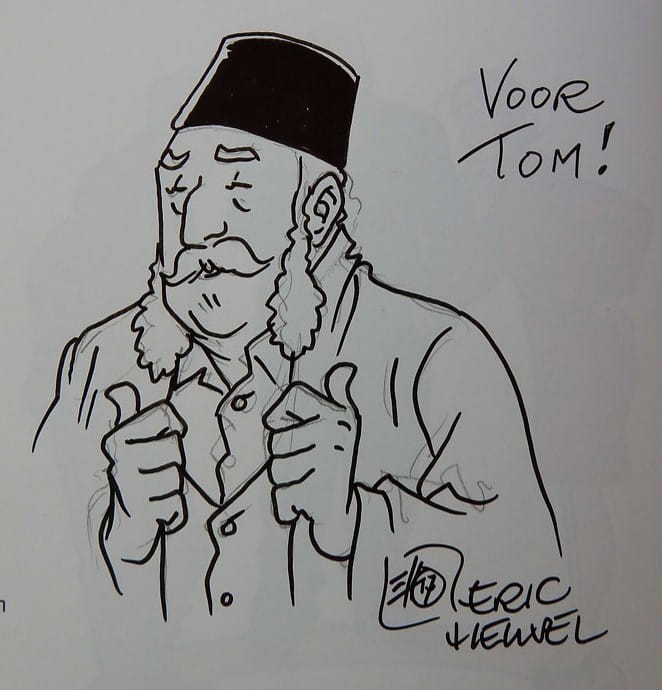 VOOR
TOM!
EH 17
ERIC
HEUVEL